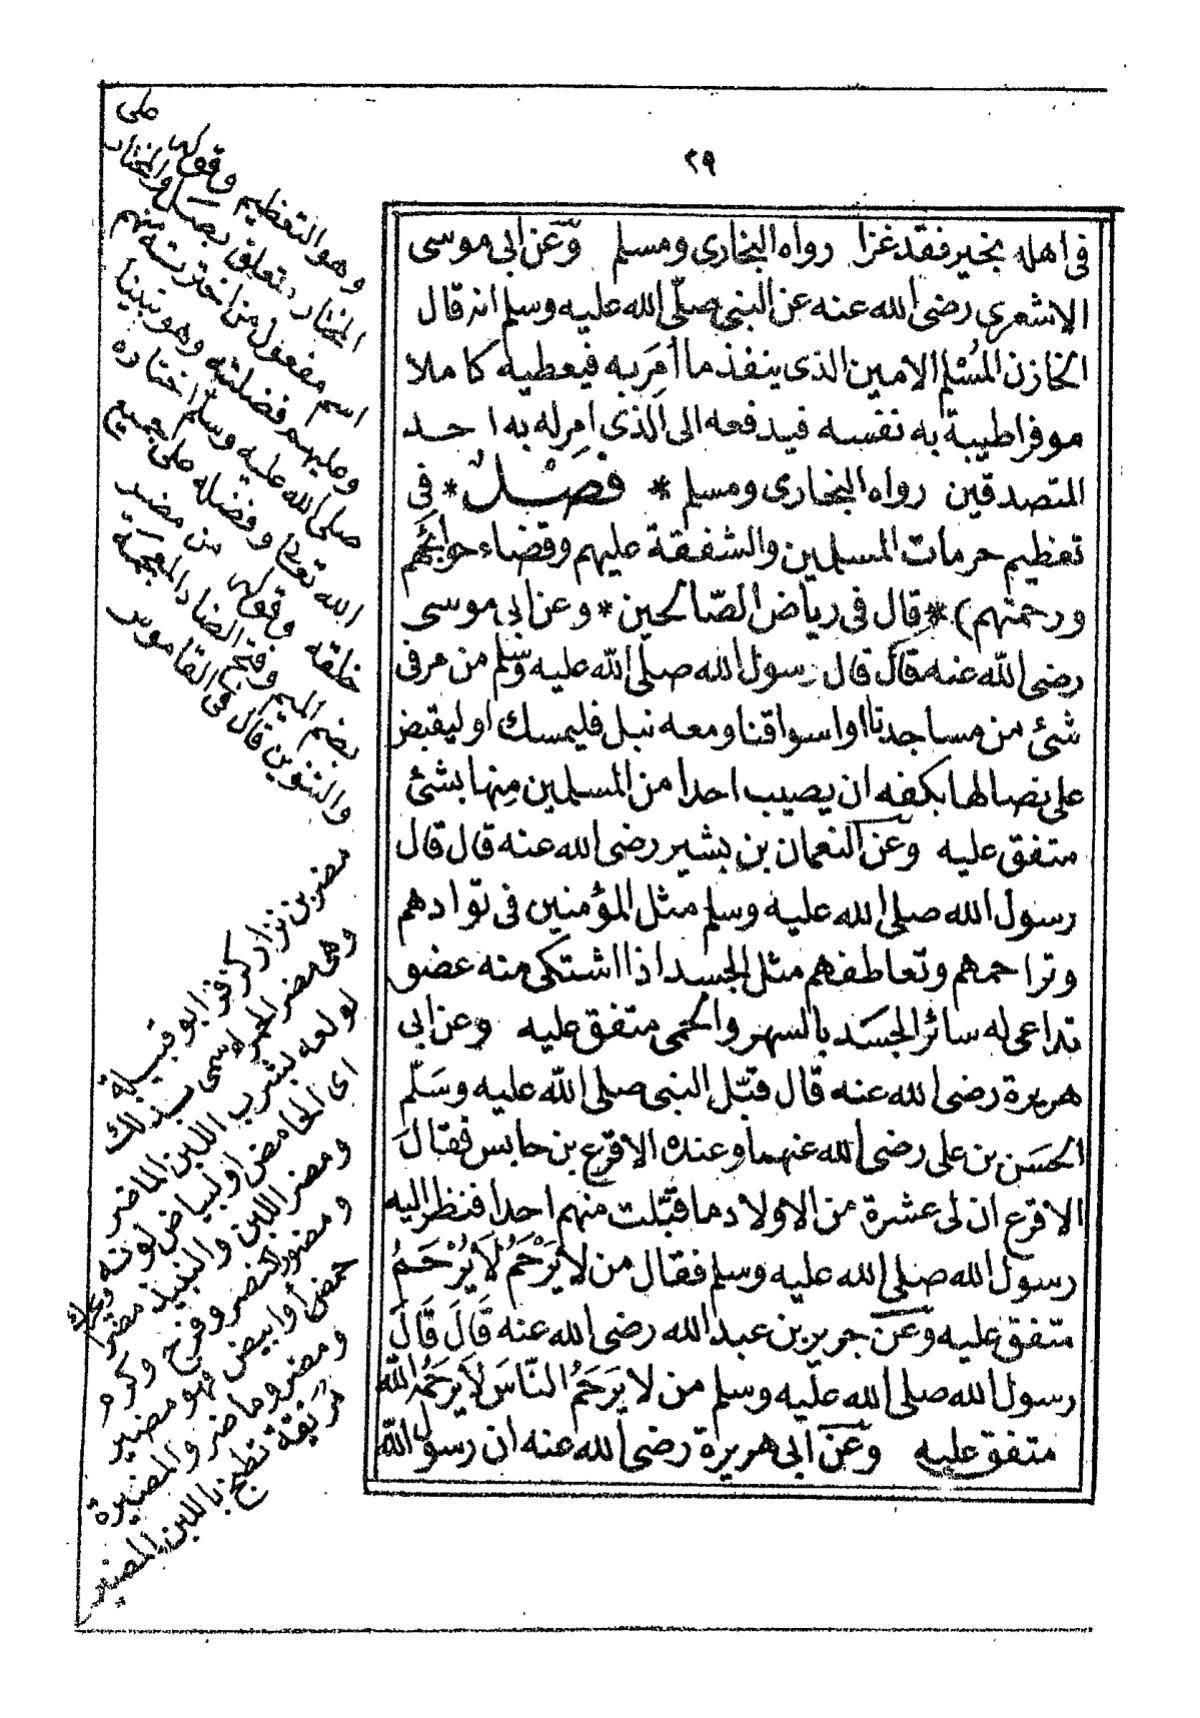 ٢٩
فى اهله بخير فقد غزا رواه البخارى ومسلم وعن ابى موسى
الاشعرى رضى الله عنه عن النبى صلّى الله عليه وسلم انه قال
الخازن المُسْلم الامين الذى ينفذ ما أُمِرَ به فيعطيه كاملا
موفرا طيبة به نفسه فيدفعه الى الذي امِر له به احد
المتصدقين رواه البخارى ومسلم * فصْلٌ * فى
تعظيم حرمات المسلمين والشفقة عليهم وقضاء حوائجهم
ورحمتهم) * قال فى رياض الصّالحين * وعن ابى موسى
رضى الله عنه قال قال رسول الله صلى الله عليه وسلم من مر فى
شئ من مساجدنا او اسواقنا ومعه نبل فليمسك او ليقبض
على نصالها بكفه ان يصيب احدا من المسلمين مِنها بشئ
متفق عليه وعن النعمان بن بشير رضى الله عنه قال قال
رسول الله صلى الله عليه وسلم مثل المؤمنين فى توادهم
وتراحمهم وتعاطفهم مثل الجسد اذا اشتكى منه عضو
تداعى له سائر الجسَد بالسهر والحمى متفق عليه وعن ابى
هريرة رضى الله عنه قال قبّل النبى صلى الله عليه وسَلّم
الحسَن بن على رضى الله عنهما وعنده الاقرع بن حابس فقالَ
الاقرع ان لى عشرة من الاولاد ما قبّلت منهم احدا فنظر اليه
رسول الله صلى الله عليه وسلم فقال من لاَ يَرْحَمُ لاَ يُرْحَمُ
متفق عليه وعن جرير بن عبد الله رضى الله عنه قَالَ قَالَ
رسول الله صلى الله عليه وسلم من لا يَرحَمُ النّاسَ لاَ يَرحَمُهُ الله
متفق عليه وعن ابى هريرة رضى الله عنه ان رسول الله
وهو التعظيم وقوله على
المختار متعلق بصَل والمختار
اسم مفعول من اخترته منهم
وعليهم فضلته وهو نبينا
صلى الله عليه وسلم اختاره
الله تعالى وفضله على جميع
خلقه وقوله من مضر
بضم الميم وفتح الضاد المعجمة
والتنوين قال فى القاموس
مضر بن نزار كزفر ابو قبيلة
وهى مضر الحمراء سمى بذلك
لولعه بشرب اللبن الماضر
اى الحامض او لبياض لونه
ومضر اللبن والنبيذ مضرا ويحرك
ومضورا كنصر وفرح وكرم
حمض أو ابيض فهو مضير
ومضر وماضر والمضيرة
مريقة تطبخ باللبن المضير